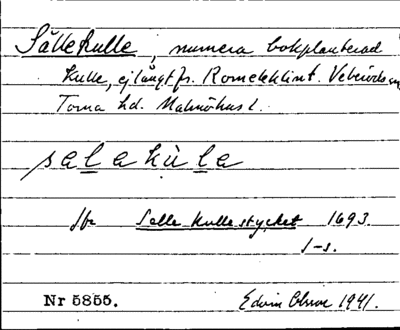 Sällekulle, numera bokplanterad
Kulle, ej långt fr. Romeleklint. Veberöds sn
Torna hd. Malmöhus l.
salakùla
jfr Salle Kulle stycket 1693.
J-s.
Nr 5855. Edvin Ohlsson 1941.